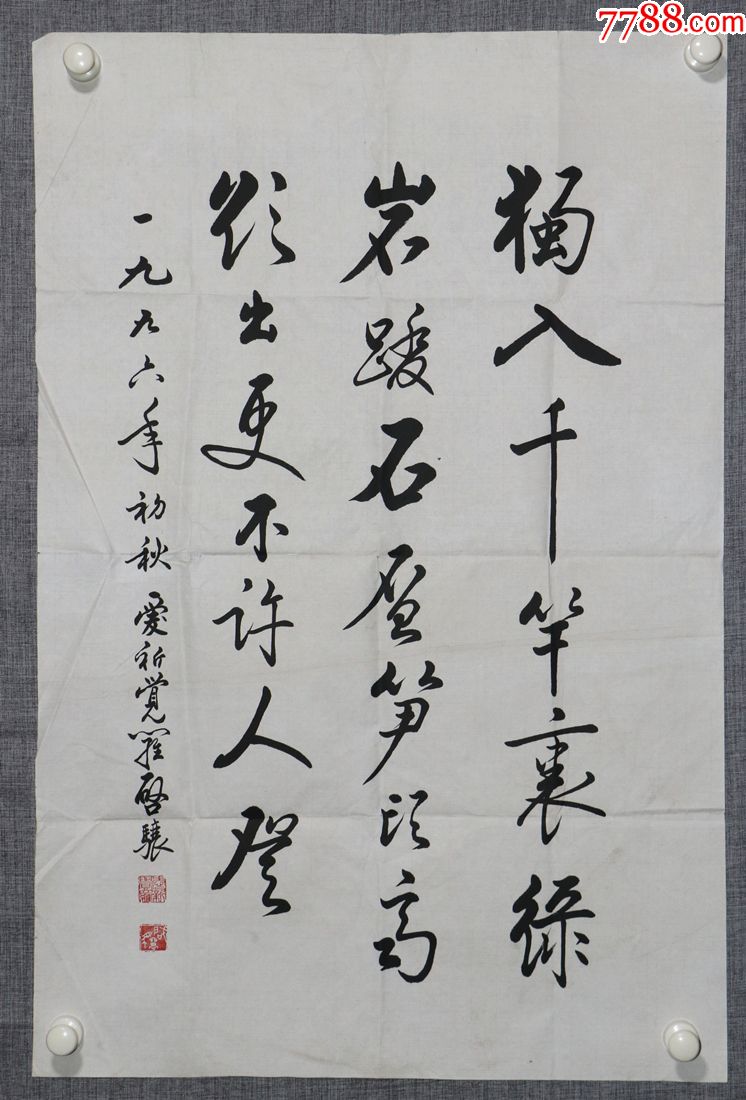 7788.com
獨入千竿裏緣
岩踏石层筍頭齊
欲出更不許人登
一九九六年初秋愛新覺羅啓驤